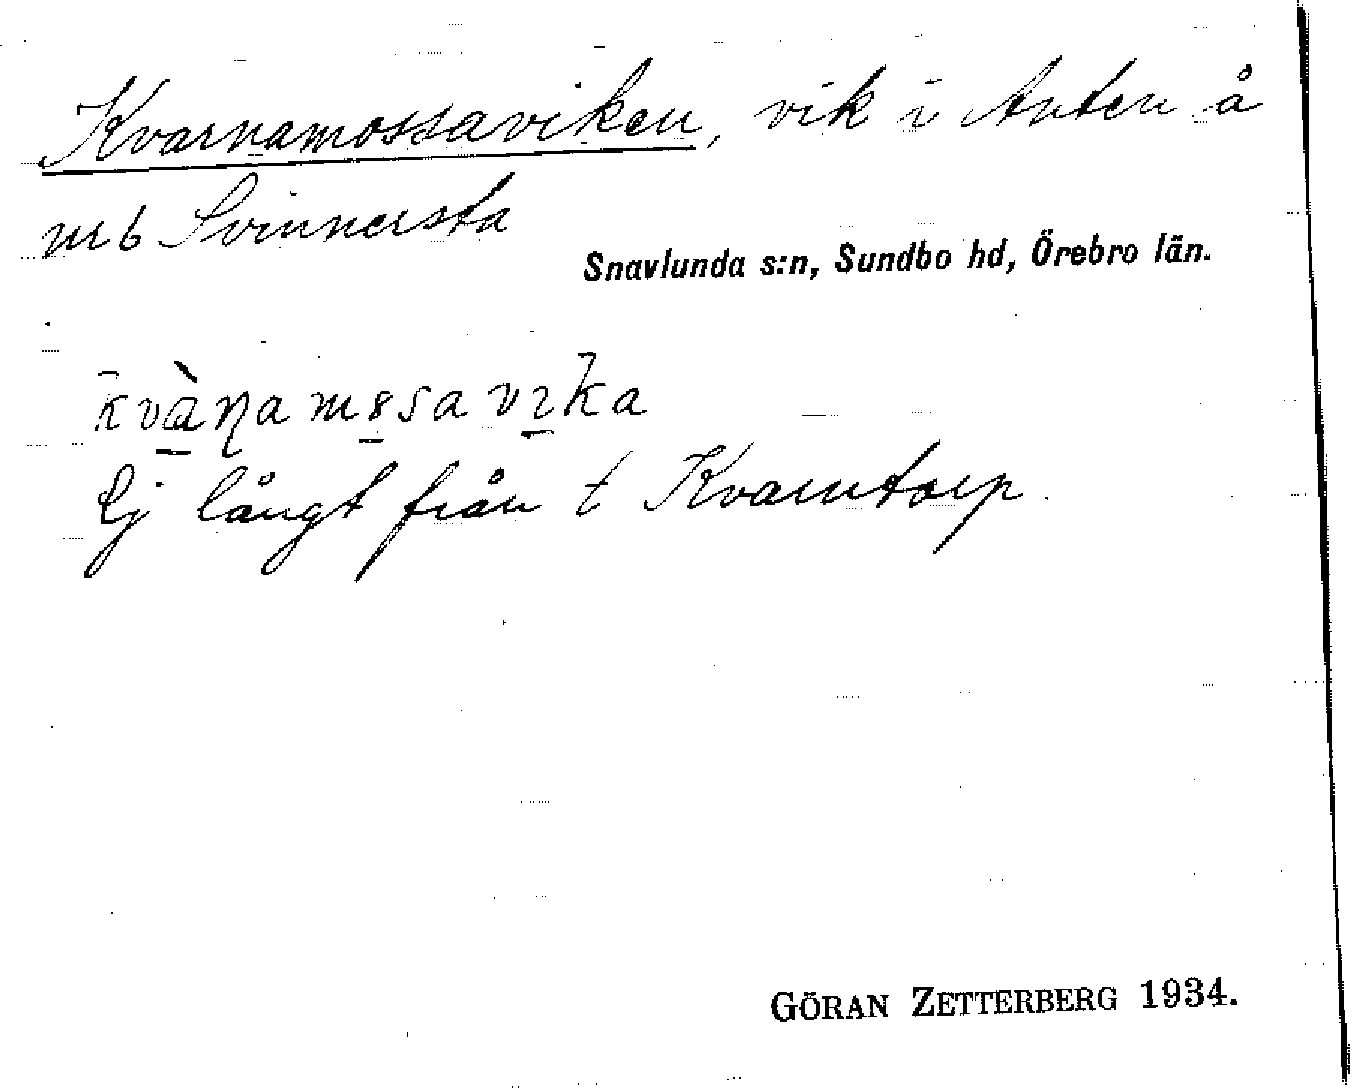 Kvarnamossaviken, vik i Anten å
mb Svinnersta
Snavlunda s:n, Sundbo hd, Örebro län.
Ej långt från t Kvarntorp.
GÖRAN ZETTERBERG 1934.